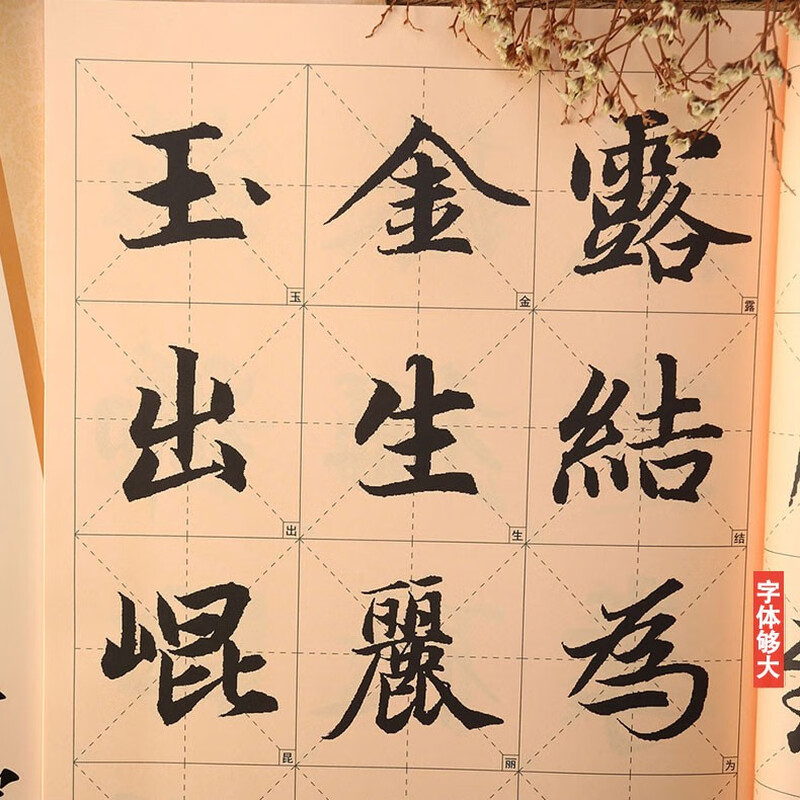 露結為
金生麗
玉出崐
露
结
为
金
生
丽
玉
出
昆
字体够大